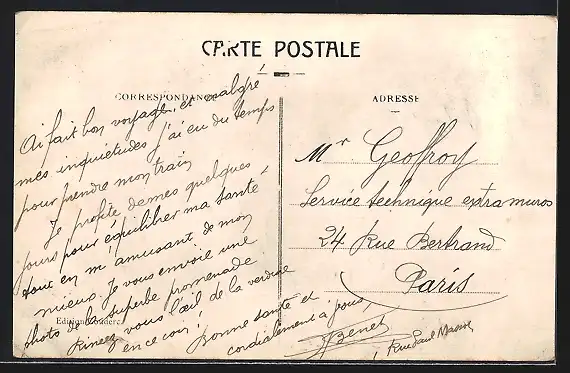 CARTE POSTALE
CORRESPONDANCE
ADRESSE
Ai fait bon voyage, et malgré
mes inquiétudes j'ai eu du temps
pour prendre mon train
Je profite de mes quelques
jours pour équilibrer ma santé
tout en m'amusant de mon
mieux. Je vous envoie une
photo de la superbe promenade
Rincez vous l'œil de la verdure
en ce coin!
Bonne santé et
cordialement à vous,
Benet
Rue Paul
Mr. Geoffroy
Service technique extra muros
24 Rue Bertrand
Paris
Edition